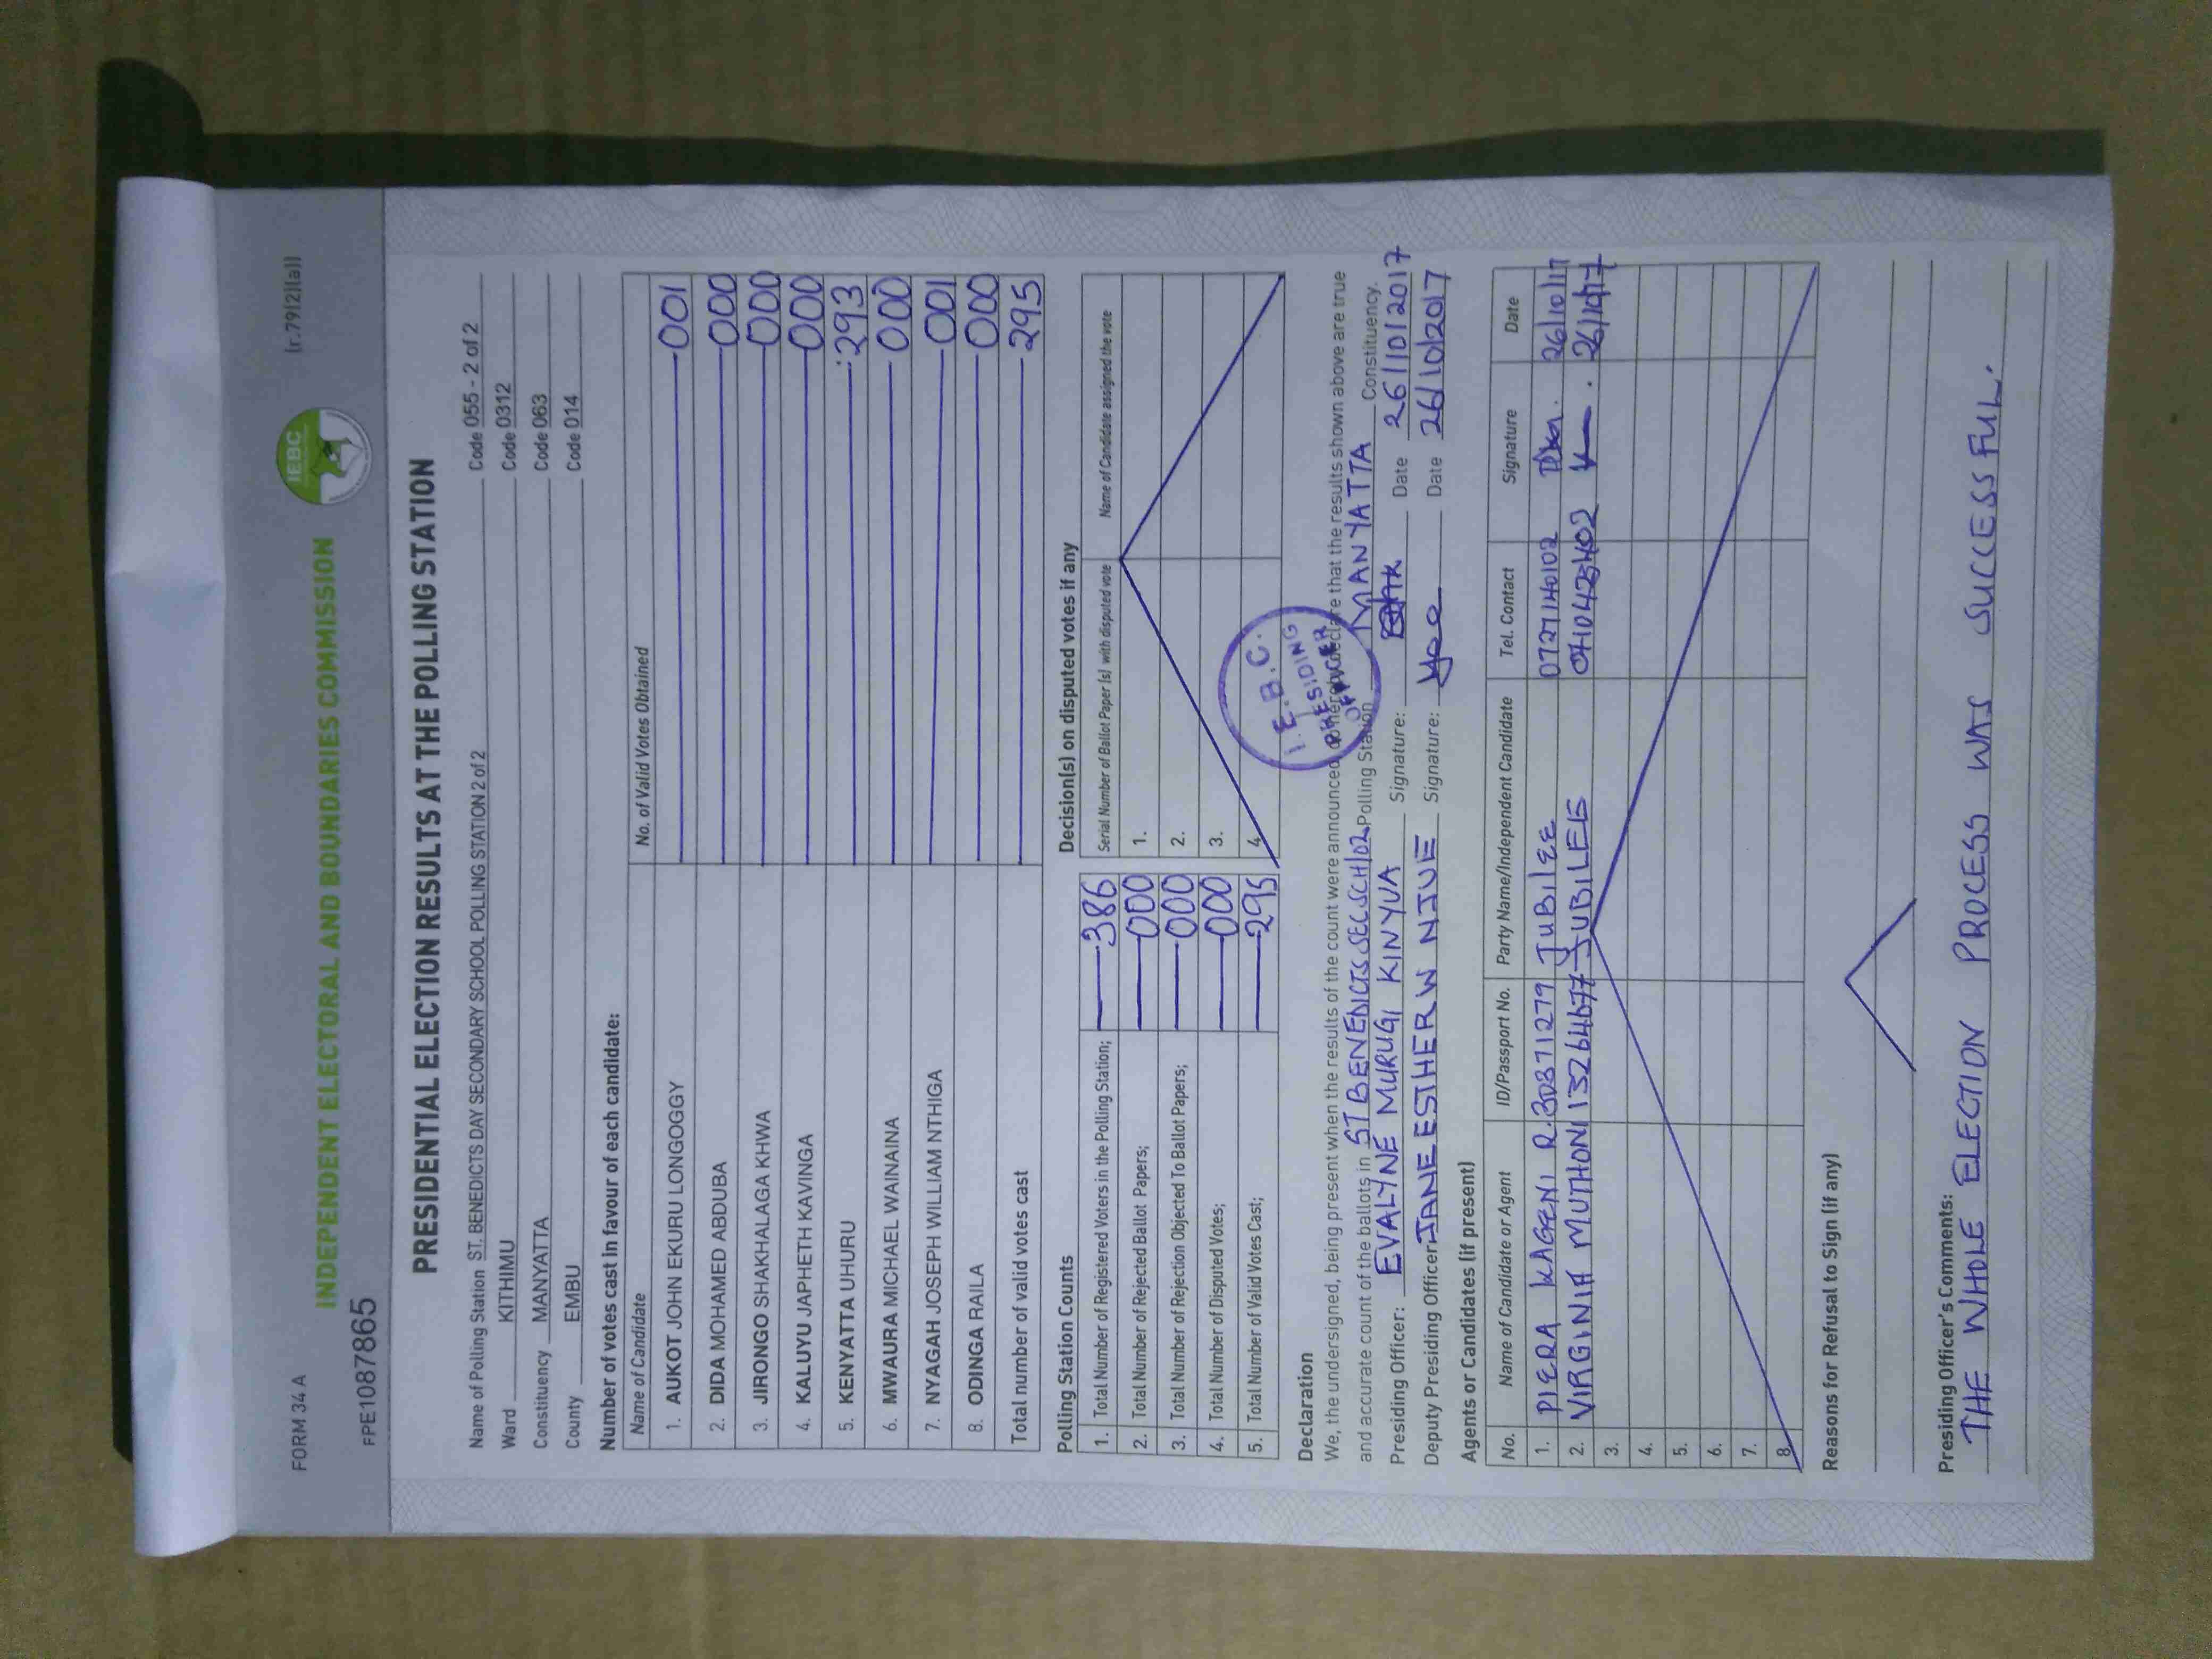 FORM 34 A
(r.79(2)(a))
IEBC
INDEPENDENT ELECTORAL AND BOUNDARIES COMMISSION
FPE1087865
PRESIDENTIAL ELECTION RESULTS AT THE POLLING STATION
Name of Polling Station ST. BENEDICTS DAY SECONDARY SCHOOL POLLING STATION 2 of 2 Code 055 - 2 of 2
Ward KITHIMU Code 0312
Constituency MANYATTA Code 063
County EMBU Code 014
Number of votes cast in favour of each candidate:
Name of Candidate No. of Valid Votes Obtained
1. AUKOT JOHN EKURU LONGOGGY 001
2. DIDA MOHAMED ABDUBA 000
3. JIRONGO SHAKHALAGA KHWA 000
4. KALUYU JAPHETH KAVINGA 000
5. KENYATTA UHURU 293
6. MWAURA MICHAEL WAINAINA 000
7. NYAGAH JOSEPH WILLIAM NTHIGA 001
8. ODINGA RAILA 000
Total number of valid votes cast 295
Polling Station Counts
1. Total Number of Registered Voters in the Polling Station; 386
2. Total Number of Rejected Ballot Papers; 000
3. Total Number of Rejection Objected To Ballot Papers; 000
4. Total Number of Disputed Votes; 000
5. Total Number of Valid Votes Cast; 295
Decision(s) on disputed votes if any
Serial Number of Ballot Paper (s) with disputed vote Name of Candidate assigned the vote
1.
2.
3.
4.
I.E.B.C.
PRESIDING
OFFICER
Declaration
We, the undersigned, being present when the results of the count were announced, do hereby declare that the results shown above are true
and accurate count of the ballots in ST BENENDICTS SEC SCH/02 Polling Station MANYATTA Constituency.
Presiding Officer: EVALYNE MURUGI KINYUA Signature: Date 26/10/2017
Deputy Presiding Officer: JANE ESTHER W NJUE Signature: Date 26/10/2017
Agents or Candidates (if present)
No. Name of Candidate or Agent ID/Passport No. Party Name/Independent Candidate Tel. Contact Signature Date
1. PIERA KAGENI R. 30371279 JUBILEE 0727140102 26/10/17
2. VIRGINIA MUTHONI 13264677 JUBILEE 26/10/17
3.
4.
5.
6.
7.
8.
Reasons for Refusal to Sign (if any)
Presiding Officer's Comments:
THE WHOLE ELECTION PROCESS WAS SUCCESSFUL.